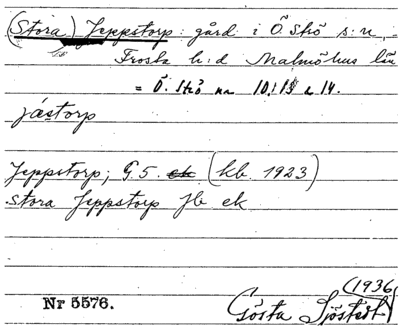 (Stora) Jeppstorp: gård i Ö. Strö s:n,
Frosta h:d Malmöhus län
= Ö. Strö nr 10, 13 o 14.
jästorp
Jeppstorp, G.5. ek (kb. 1923)
Stora Jeppstorp Jb ek
(1936)
Nr 5576. Gösta Sjöstedt